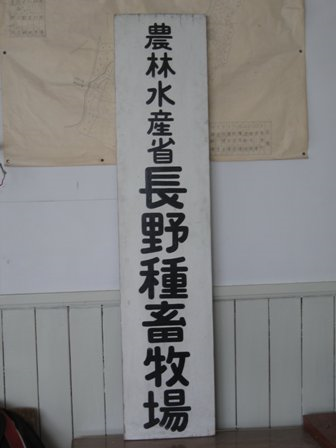 農林水産省長野種畜牧場